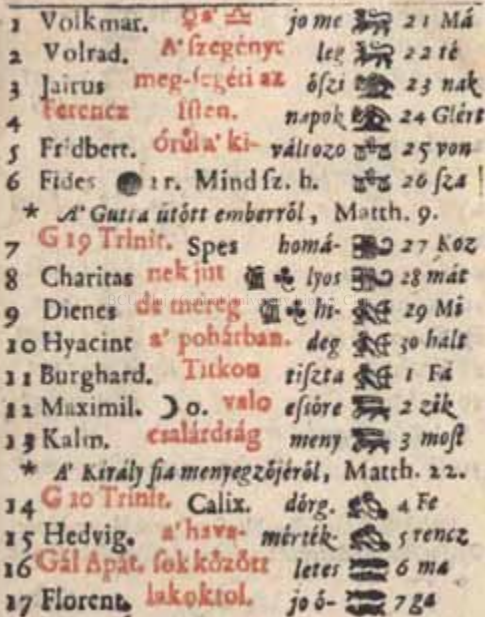 1 Volkmar. ♀ a' ♎ jo me 21 Má
2 Volrad. A' ſzegényt leg 22 té
3 Jairus meg-ſegéti az őſzi 23 nak
4 Ferencz Iſten. napok 24 Glért
5 Fridbert. órűl a' ki- változo 25 von
6 Fides 1 r. Mind ſz. h. 26 ſza
* A' Gutta ütött emberről, Matth. 9.
7 G 19 Trinit. Spes homá- 27 Koz
8 Charitas nek jut lyos 28 mát
9 Dienes de méreg hi- 29 Mi
10 Hyacint a' pohárban. deg 30 hált
11 Burghard. Titkon tiſzta 1 Fá
12 Maximil. ☽ 0. valo eſsőre 2 zik
13 Kalm. csalárdság meny 3 moſt
* A' Király fia menyegzőjéről, Matth. 22.
14 G 20 Trinit. Calix. dörg. 4 Fe
15 Hedvig. a' hava- mérték- 5 rencz
16 Gál Apát. ſok között letes 6 ma
17 Florent. lakoktol. jo ó- 7 ga